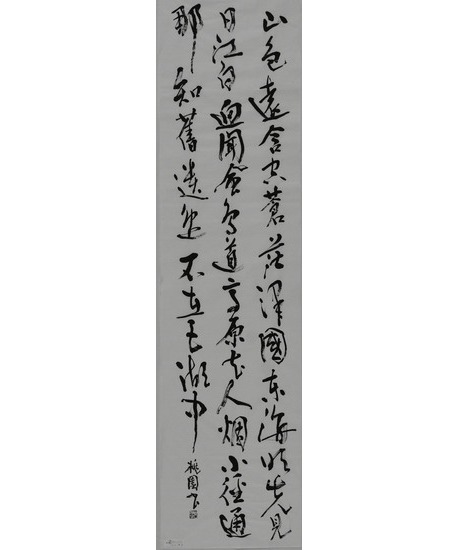 山色遠含空蒼茫澤國東海明先見
日江白迥聞風鳥道高原去人烟小徑通
那知舊遺逸不在五湖中
桃園